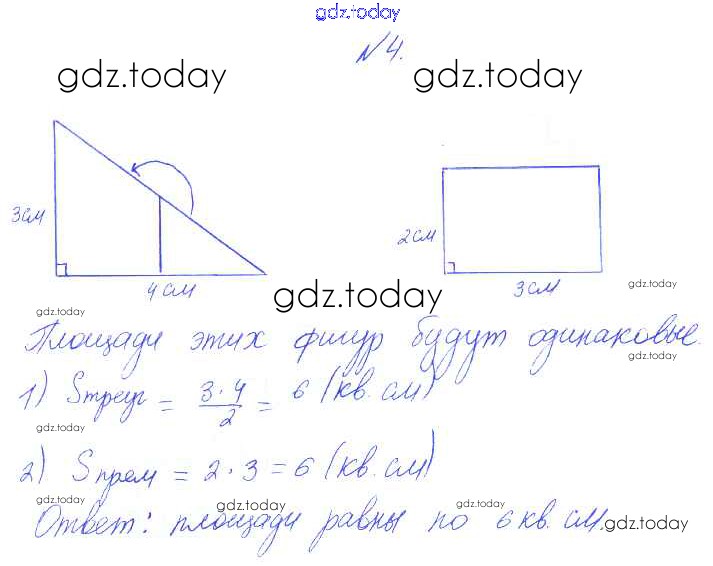 gdz.today
№4.
gdz.today gdz.today
3см
2см
4см
3см
gdz.today
gdz.today
gdz.today
Площади этих фигур будут одинаковые.
gdz.today
1) Sтреуг = 3·4/2 = 6 (кв. см)
gdz.today
2) Sпрям = 2·3 = 6 (кв. см)
gdz.today gdz.today
Ответ: площади равны по 6 кв. см.
gdz.today